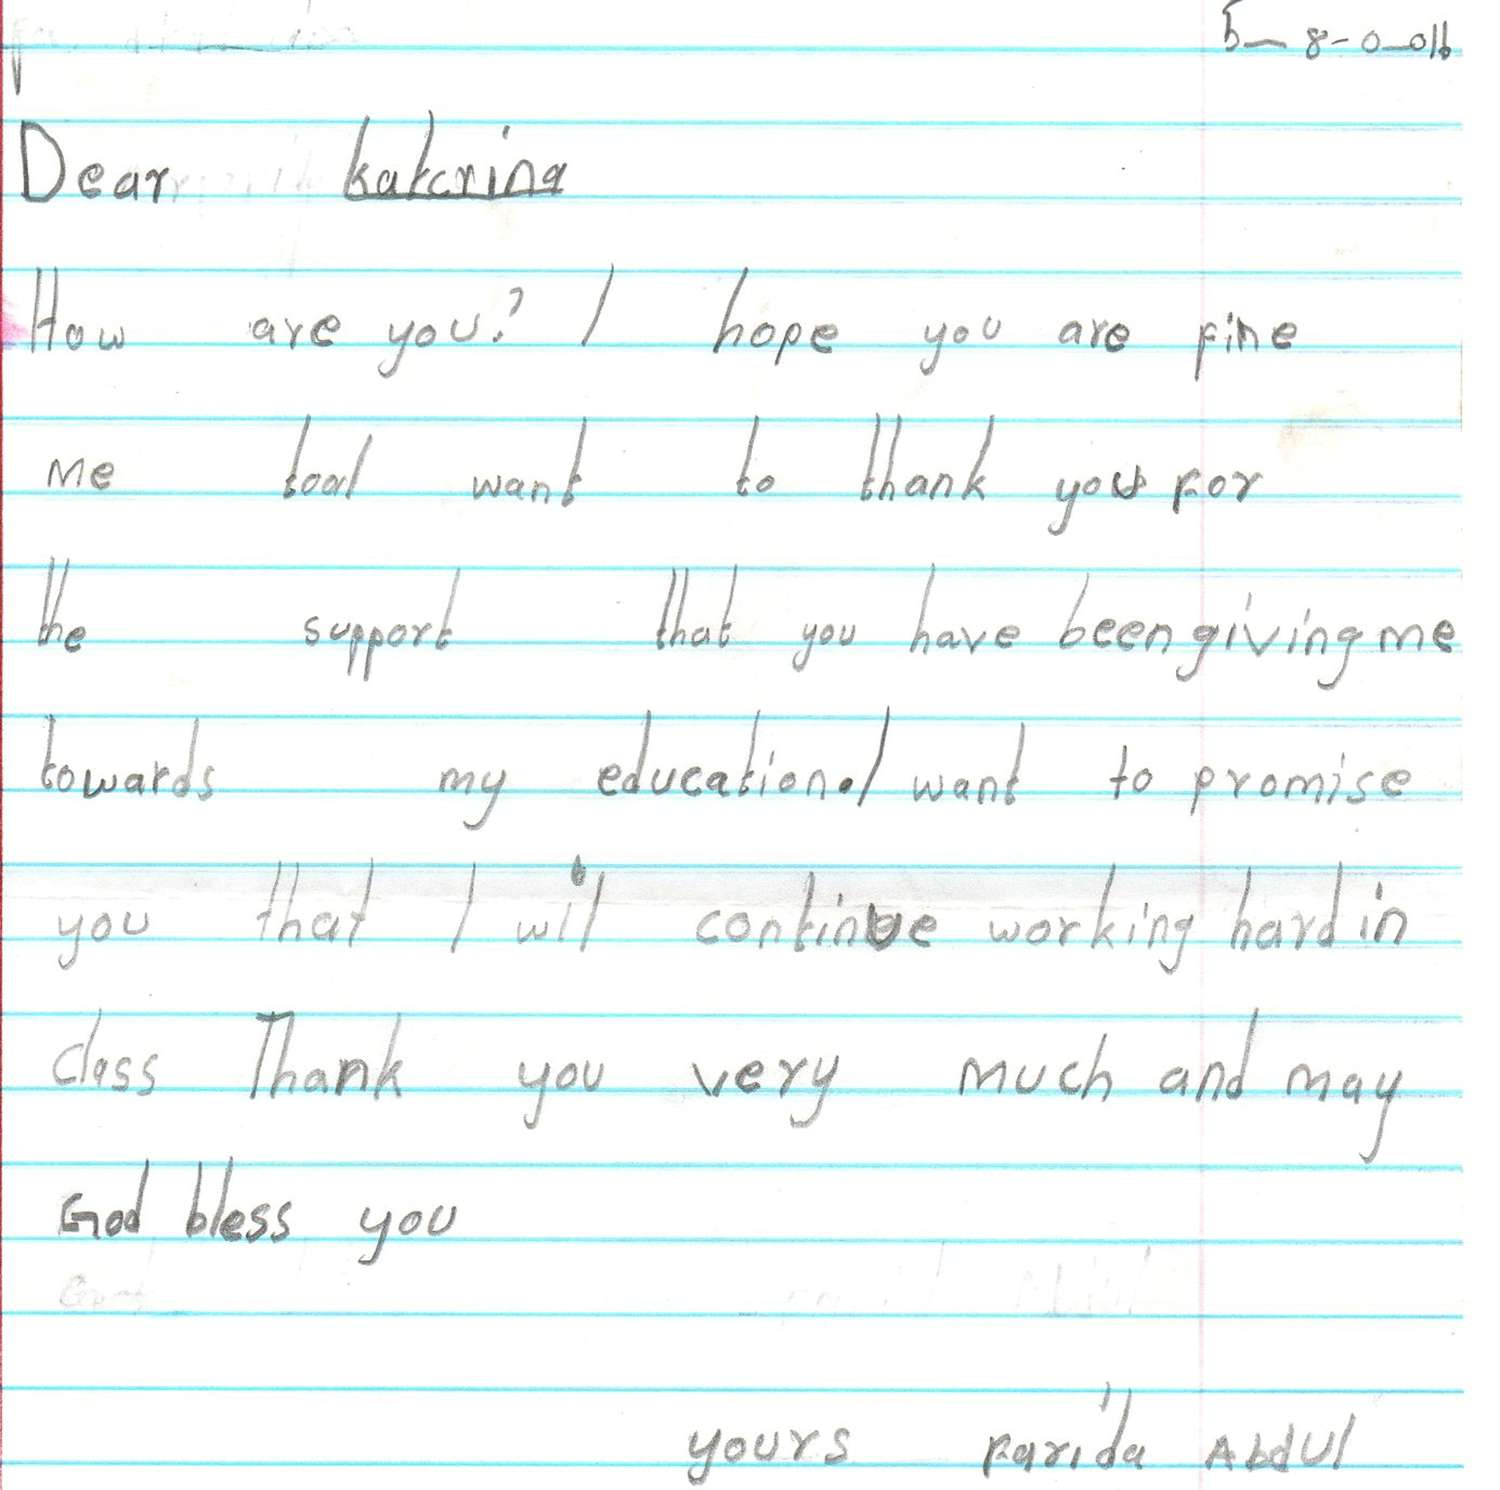 5-8-0-016
Dear Katerina
How are you? I hope you are fine
me too I want to thank you for
the support that you have been giving me
towards my education. I want to promise
you that I wil continue working hard in
class Thank you very much and may
God bless you
yours Farida Abdul